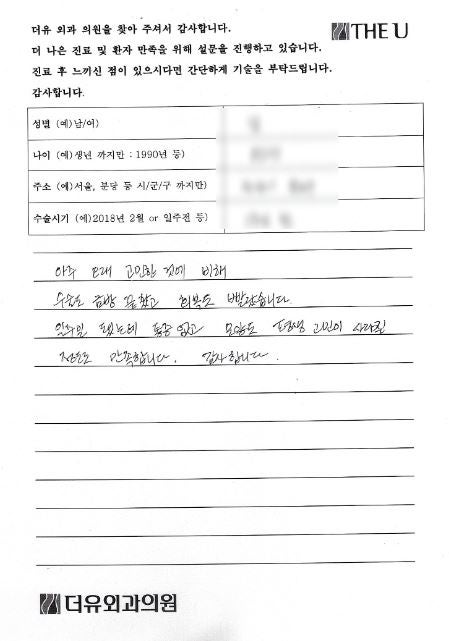 더유 외과 의원을 찾아 주셔서 감사합니다.
THE U
더 나은 진료 및 환자 만족을 위해 설문을 진행하고 있습니다.
진료 후 느끼신 점이 있으시다면 간단하게 기술을 부탁드립니다.
감사합니다.
성별 (예)남/여)
나이 (예)생년 까지만 : 1990년 등)
주소 (예)서울, 분당 등 시/군/구 까지만)
수술시기 (예)2018년 2월 or 일주전 등)
아주 오래 고민한 것에 비해
수술도 금방 끝났고 회복도 빨랐습니다
일주일 됐는데 통증 없고 모양도 평생 고민이 사라질
정도로 만족합니다. 감사합니다.
더유외과의원